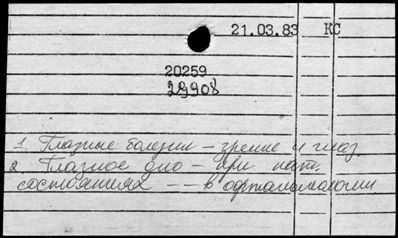 21.03.83 КС
20259
29908
1. Глазные болезни – зрение и глаз.
2. Глазное дно – при пат.
состояниях -- в офтальмологии